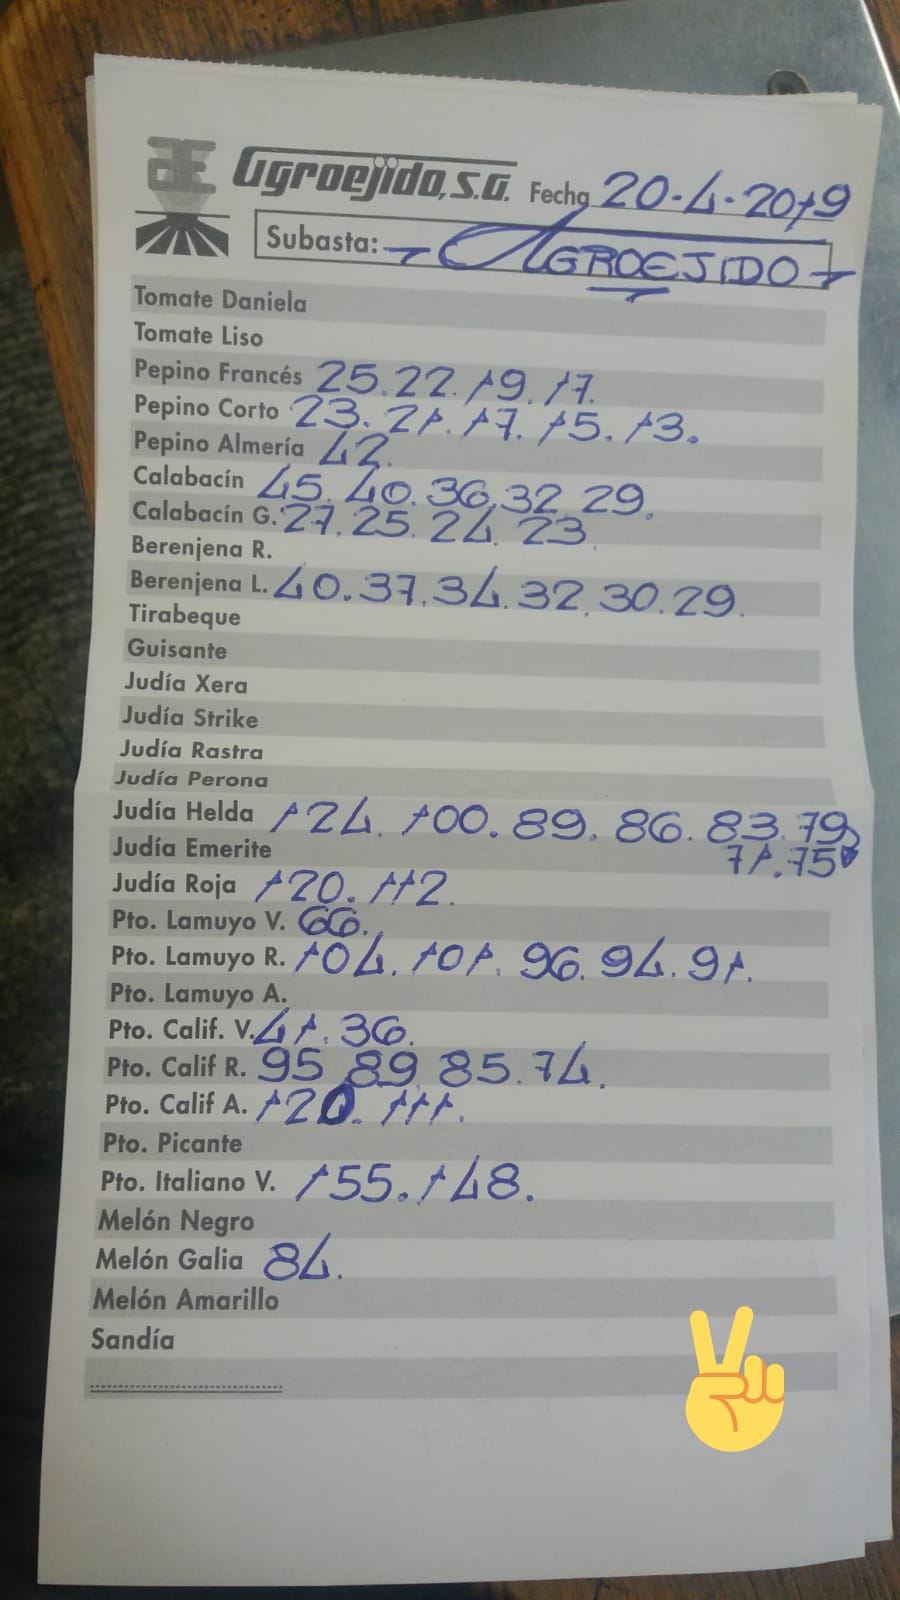 Agroejido, S.A. Fecha 20-4-2019
Subasta: - AGROEJIDO -
Tomate Daniela
Tomate Liso
Pepino Francés 25. 22. 19. 17.
Pepino Corto 23. 21. 17. 15. 13.
Pepino Almería 42.
Calabacín 45. 40. 36. 32. 29.
Calabacín G. 27. 25. 24. 23.
Berenjena R.
Berenjena L. 40. 37. 34. 32. 30. 29.
Tirabeque
Guisante
Judía Xera
Judía Strike
Judía Rastra
Judía Perona
Judía Helda 124. 100. 89. 86. 83. 79
Judía Emerite 71. 75
Judía Roja 120. 112.
Pto. Lamuyo V. 66.
Pto. Lamuyo R. 104. 101. 96. 94. 91.
Pto. Lamuyo A.
Pto. Calif. V. 41. 36.
Pto. Calif R. 95. 89. 85. 74.
Pto. Calif A. 120. 111.
Pto. Picante
Pto. Italiano V. 155. 148.
Melón Negro
Melón Galia 84.
Melón Amarillo
Sandía